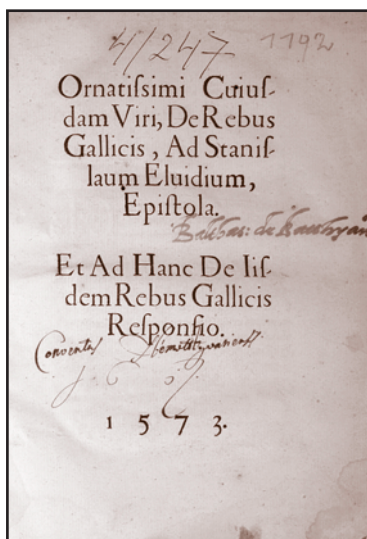 4/247 1192
Ornatiſſimi Cuiuſ-
dam Viri, De Rebus
Gallicis, Ad Staniſ-
laum Eluidium,
Epiſtola.
Balthas: de Batthyan
Et Ad Hanc De Iiſ-
dem Rebus Gallicis
Reſponſio.
Conventus
1 5 7 3.